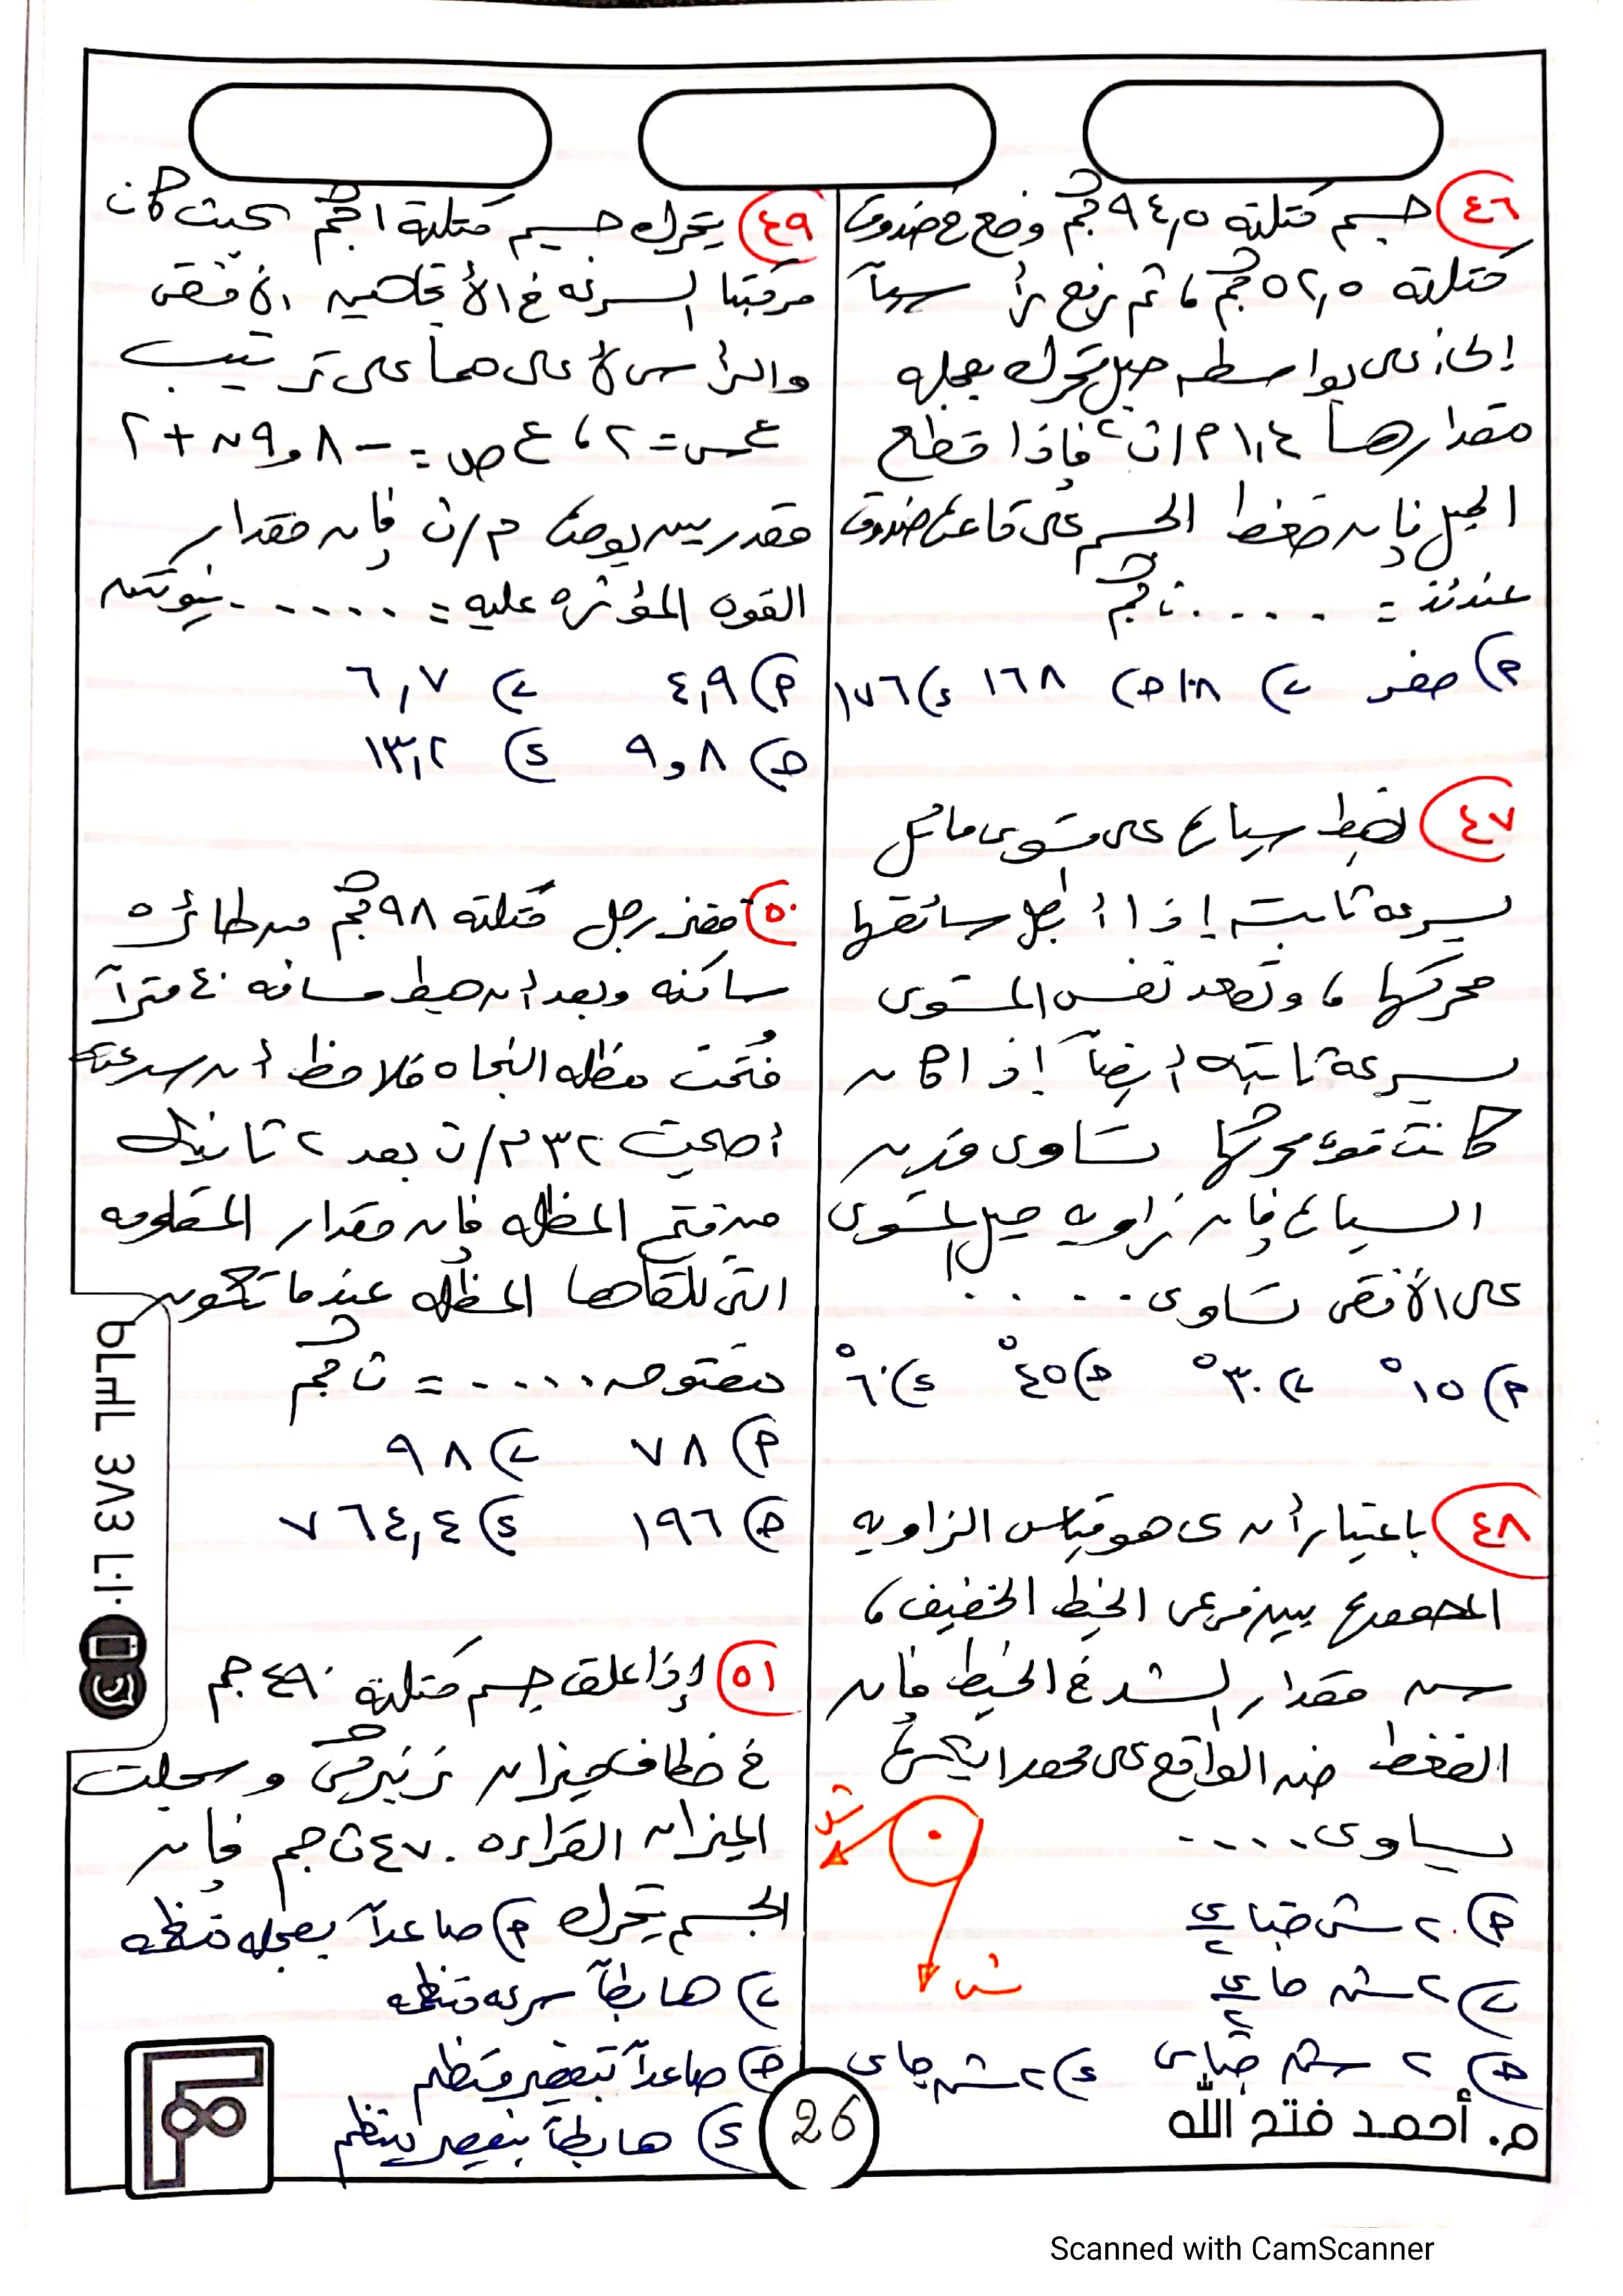 ٤٦ جسم كتلته ٩٤,٥ كجم وضع فى صندوق
كتلته ٥٢,٥ كجم ، ثم رفع رأسياً
إلى أعلى بواسطه حبل يتحرك بعجله
مقدارها ١,٤ م/ث٢ فإذا قطع
الحبل فإن ضغط الجسم على قاعده الصندوق
عندئذ = . . . . ث كجم
أ) صفر ب) ١٠٨ ج) ١٦٨ د) ١٧٦
٤٧ تهبط سياره على مستوى مائل
بسرعه ثابته إذا أبطل سائقها
محركها ، وتصعد نفس المستوى
بسرعه ثابته أيضاً إذا كان
كانت قوه محركها تساوى وزن
السياره فإن زاويه ميل المستوى
على الأفقى تساوى . . . . .
أ) ١٥° ب) ٣٠° ج) ٤٥° د) ٦٠°
٤٨ باعتبار أن ى هو قياس الزاويه
المحصوره بين فرعى الخيط الخفيف ،
شـ مقدار الشد فى الخيط فإن
الضغط ضـ الواقع على محور البكره
يساوى . . . .
شـ
شـ
أ) ٢ شـ حتا ى/٢
ب) ٢ شـ حا ى/٢
ج) ٢ شـ حتا ى د) ٢ شـ حا ى
٤٩ يتحرك جسيم كتلته ١ كجم بحيث كان
مركبتا السرعه فى الأتجاهين الأفقى
والرأسى لأعلى هما على ترتيب
ع س = ٢ ، ع ص = - ٩,٨ ن + ٢
مقدرين بوحدة م/ث فإن مقدار
القوه المؤثره عليه = . . . . . . نيوتن
أ) ٤,٩ ب) ٦,٧
ج) ٩,٨ د) ١٣,٢
٥٠ قفز رجل كتلته ٩٨ كجم من طائره
ساكنه وبعد أن هبط مسافه ٤٠ متراً
فُتحت مظله النجاه فلاحظ أن سرعته
أصبحت ٣٢ م/ث بعد ٢ ثانيه
من فتح المظله فإن مقدار المقاومه
التى تلقاها المظله عندما تكون
مفتوحه . . . . . = ث كجم
أ) ٧٨ ب) ٩٨
ج) ١٩٦ د) ٧٦٤,٤
٥١ إذا علق جسم كتلته ٤٩٠ جم
فى خطاف ميزان زنبركى وسجلت
الميزان القراءه ٤٧٠ ث جم فإن
الجسم يتحرك أ) صاعداً بعجله منتظمه
ب) هابطاً سرعه منتظمه
ج) صاعداً بتقصير منتظم
د) هابطاً بتقصير منتظم
26
م. أحمد فتح الله
Scanned with CamScanner